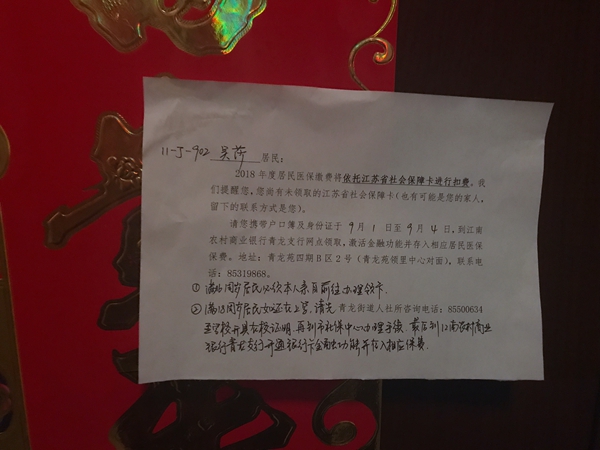 11-5-902 吴萍 居民:
2018 年度居民医保缴费将依托江苏省社会保障卡进行扣费，我
们提醒您，您尚有未领取的江苏省社会保障卡(也有可能是您的家人，
留下的联系方式是您)。
请您携带户口簿及身份证于 9月1日至9月4日，到江南
农村商业银行青龙支行网点领取，激活金融功能并存入相应居民医保
保费。地址：青龙苑四期B区2号（青龙苑领里中心对面），联系电
话：85319868。
①满16周岁居民必须本人亲自前往办理领卡.
②满18周岁居民如还在上学,请先 青龙街道人社所咨询电话：85500634
至学校开具在校证明,再到市社保中心办理手续,最后到江南农村商业
银行青龙支行开通银行卡金融功能并存入相应保费.